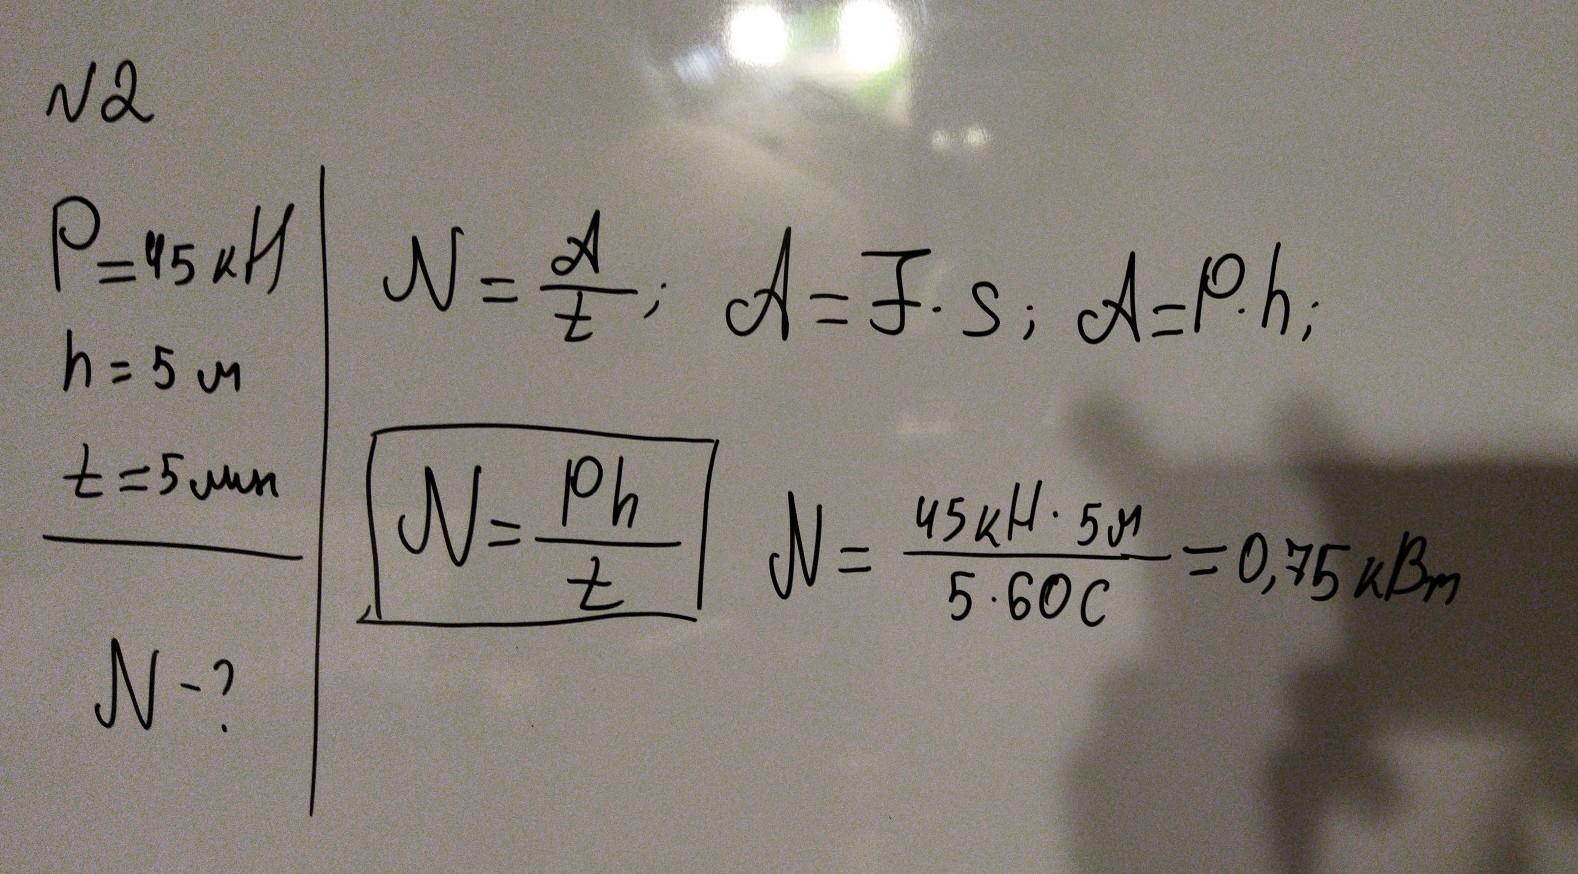 N2
P=45кН
h=5м
t=5мин
N-?
N=A/t; A=F·s; A=P·h;
N=Ph/t N=45кН·5м/5·60с=0,75кВт